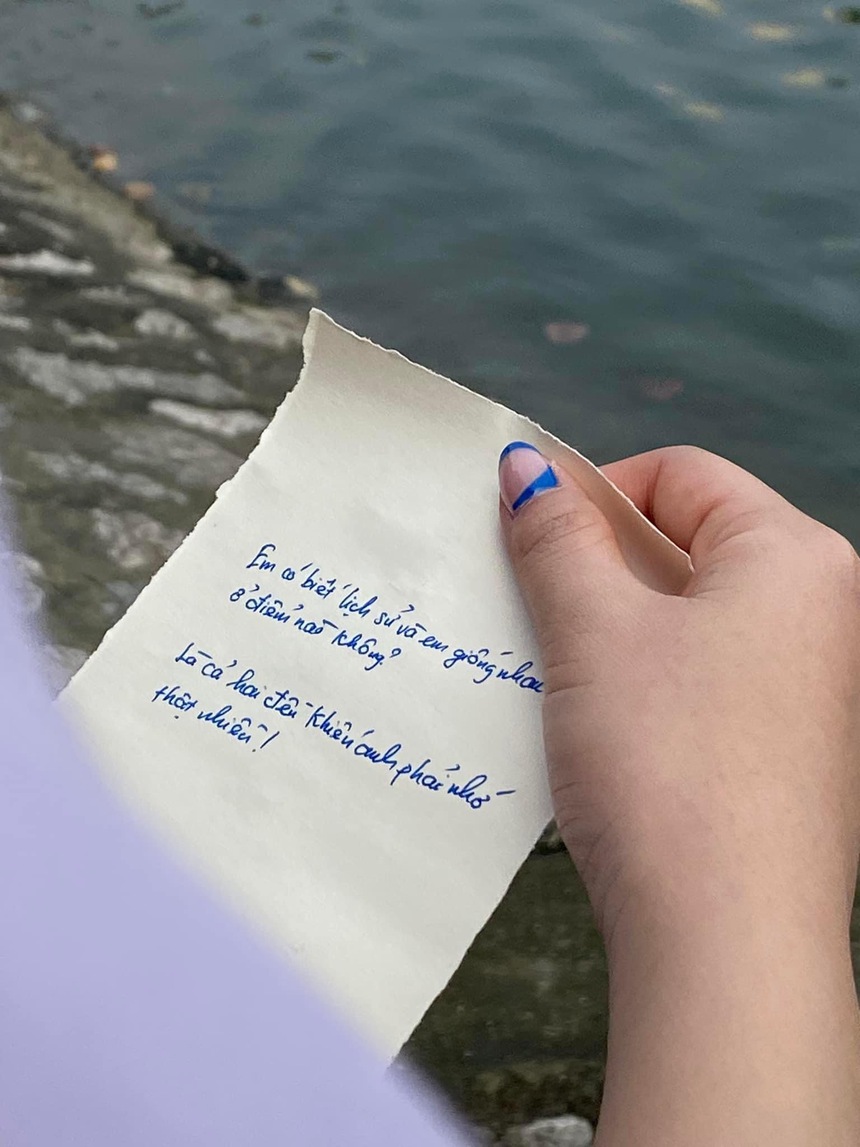 Em có biết lịch sử và em giống nhau
ở điểm nào không?
Là cả hai đều khiến anh phải nhớ
thật nhiều!